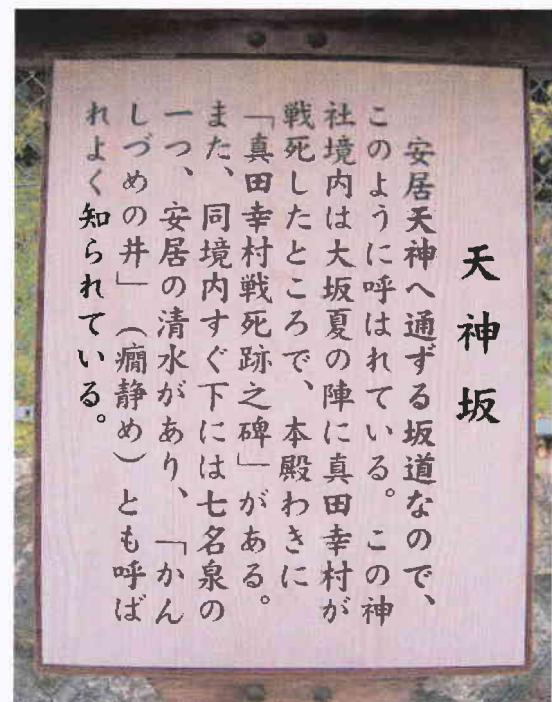 天神坂
安居天神へ通ずる坂道なので、
このように呼はれている。この神
社境内は大坂夏の陣に真田幸村が
戦死したところで、本殿わきに
「真田幸村戦死跡之碑」がある。
また、同境内すぐ下には七名泉の
一つ、安居の清水があり、「かん
しづめの井」（癇静め）とも呼ば
れよく知られている。